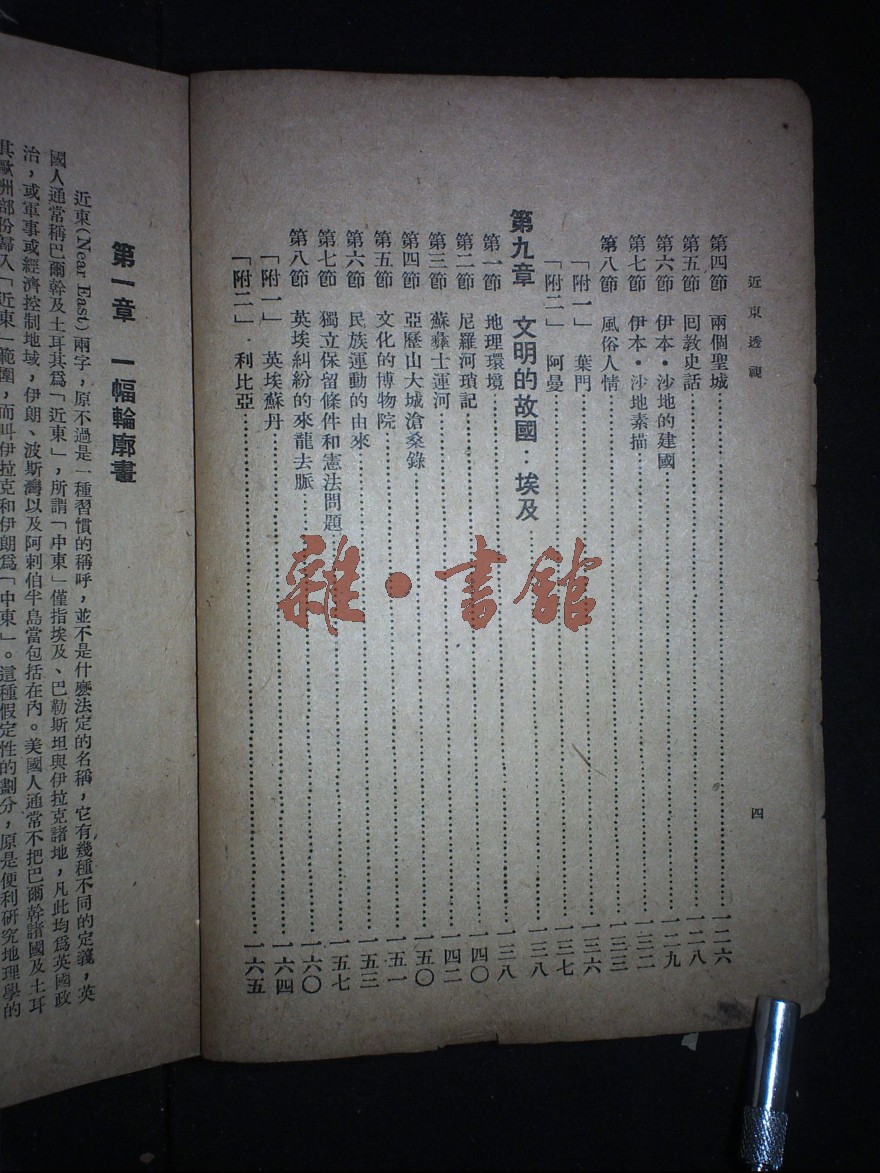 近東透視
四
第四節 兩個聖城…………一二六
第五節 囘教史話…………一二八
第六節 伊本·沙地的建國…………一二九
第七節 伊本·沙地素描…………一三二
第八節 風俗人情…………一三三
「附一」 葉門…………一三六
「附二」 阿曼…………一三七
第九章 文明的故國：埃及…………一三八
第一節 地理環境…………一三八
第二節 尼羅河瑣記…………一四〇
第三節 蘇彝士運河…………一四二
第四節 亞歷山大城滄桑錄…………一五〇
第五節 文化的博物院…………一五一
第六節 民族運動的由來…………一五三
第七節 獨立保留條件和憲法問題…………一五七
第八節 英埃糾紛的來龍去脈…………一六〇
「附一」 英埃蘇丹…………一六四
「附二」 利比亞…………一六五
雜·書館
第一章 一幅輪廓畫
近東(Near East)兩字，原不過是一種習慣的稱呼，並不是什麼法定的名稱，它有幾種不同的定義，英
國人通常稱巴爾幹及土耳其爲「近東」，所謂「中東」僅指埃及、巴勒斯坦與伊拉克諸地，凡此均爲英國政
治，或軍事或經濟控制地域，伊朗、波斯灣以及阿剌伯半島當包括在內。美國人通常不把巴爾幹諸國及土耳
其歐洲部份歸入「近東」範圍，而叫伊拉克和伊朗爲「中東」。這種假定性的劃分，原是便利研究地理學的